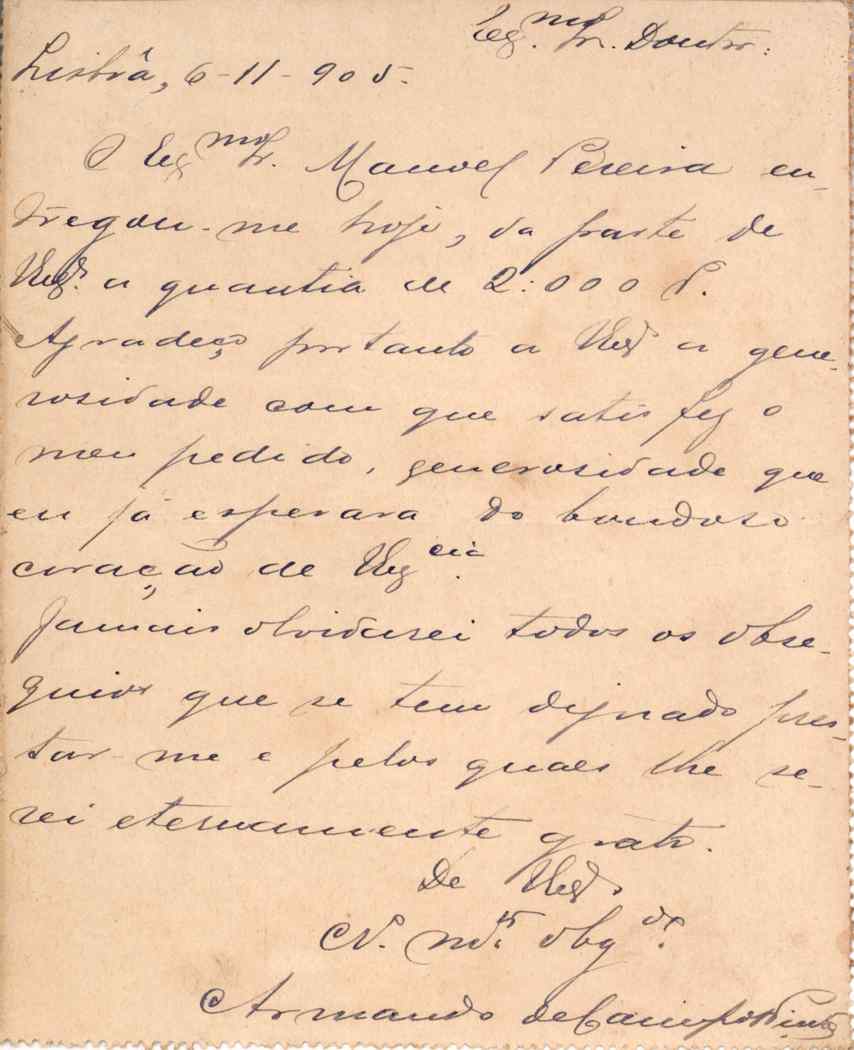 Exmo Sr. Doutor:
Lisbôa, 6-11-905.
O Exmo Sr. Manoel Pereira en-
tregou-me hoje, da parte de
VExa. a quantia de 2:000 r.
Agradeço portanto a VExa a gene-
rosidade com que satisfez o
meu pedido, generosidade que
eu já esperara do bondoso
coração de VExcia.
Jamais olvidarei todos os obse-
quios que se tem dignado pres-
tar-me e pelos quaes lhe se-
rei eternamente grato.
De VExa.
obgdo.
Armando de Campos